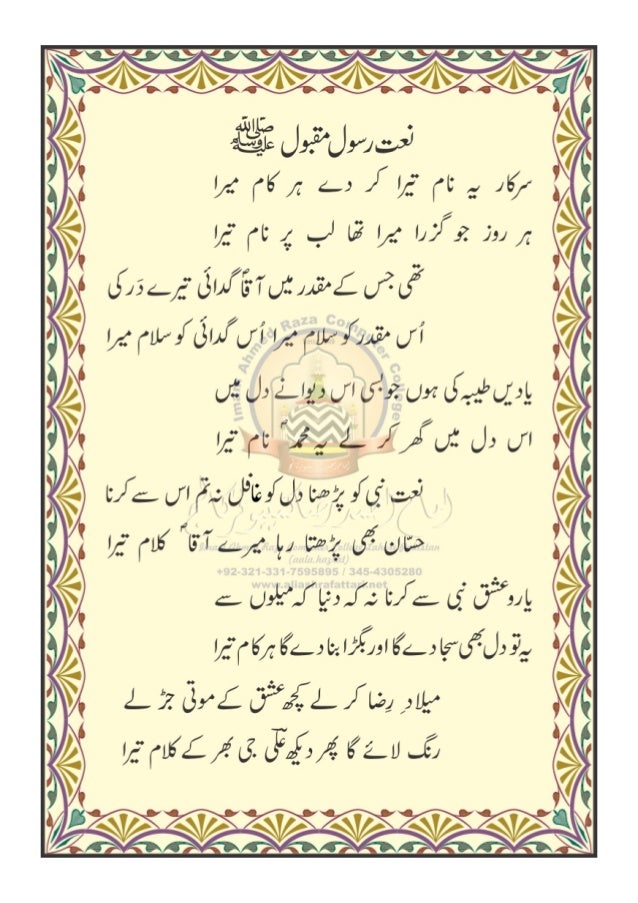 نعت رسول مقبول ﷺ
سرکار یہ نام تیرا کر دے ہر کام میرا
ہر روز جو گزرا میرا تھا لب پر نام تیرا
تھی جس کے مقدر میں آقاؐ گدائی تیرے دَر کی
اُس مقدر کو سلام میرا اُس گدائی کو سلام میرا
یادیں طیبہ کی ہوں جو بسی اس دیوانے دل میں
اس دل میں گھر کر لے یہ محمدؐ نام تیرا
نعت نبی کو پڑھنا دل کو غافل نہ تم اس سے کرنا
حسّان بھی پڑھتا رہا میرے آقاؐ کلام تیرا
یارو عشق نبی سے کرنا نہ کہ دنیا کہ میلوں سے
یہ تو دل بھی سجا دے گا اور بگڑا بنا دے گا ہر کام تیرا
میلادِ رِضا کر لے کچھ عشق کے موتی جڑ لے
رنگ لائے گا پھر دیکھ علی جی بھر کے کلام تیرا
Imam Ahmad Raza Computer College
+92-321-331-7595895 / 345-4305280
www.aliashrafattari.net